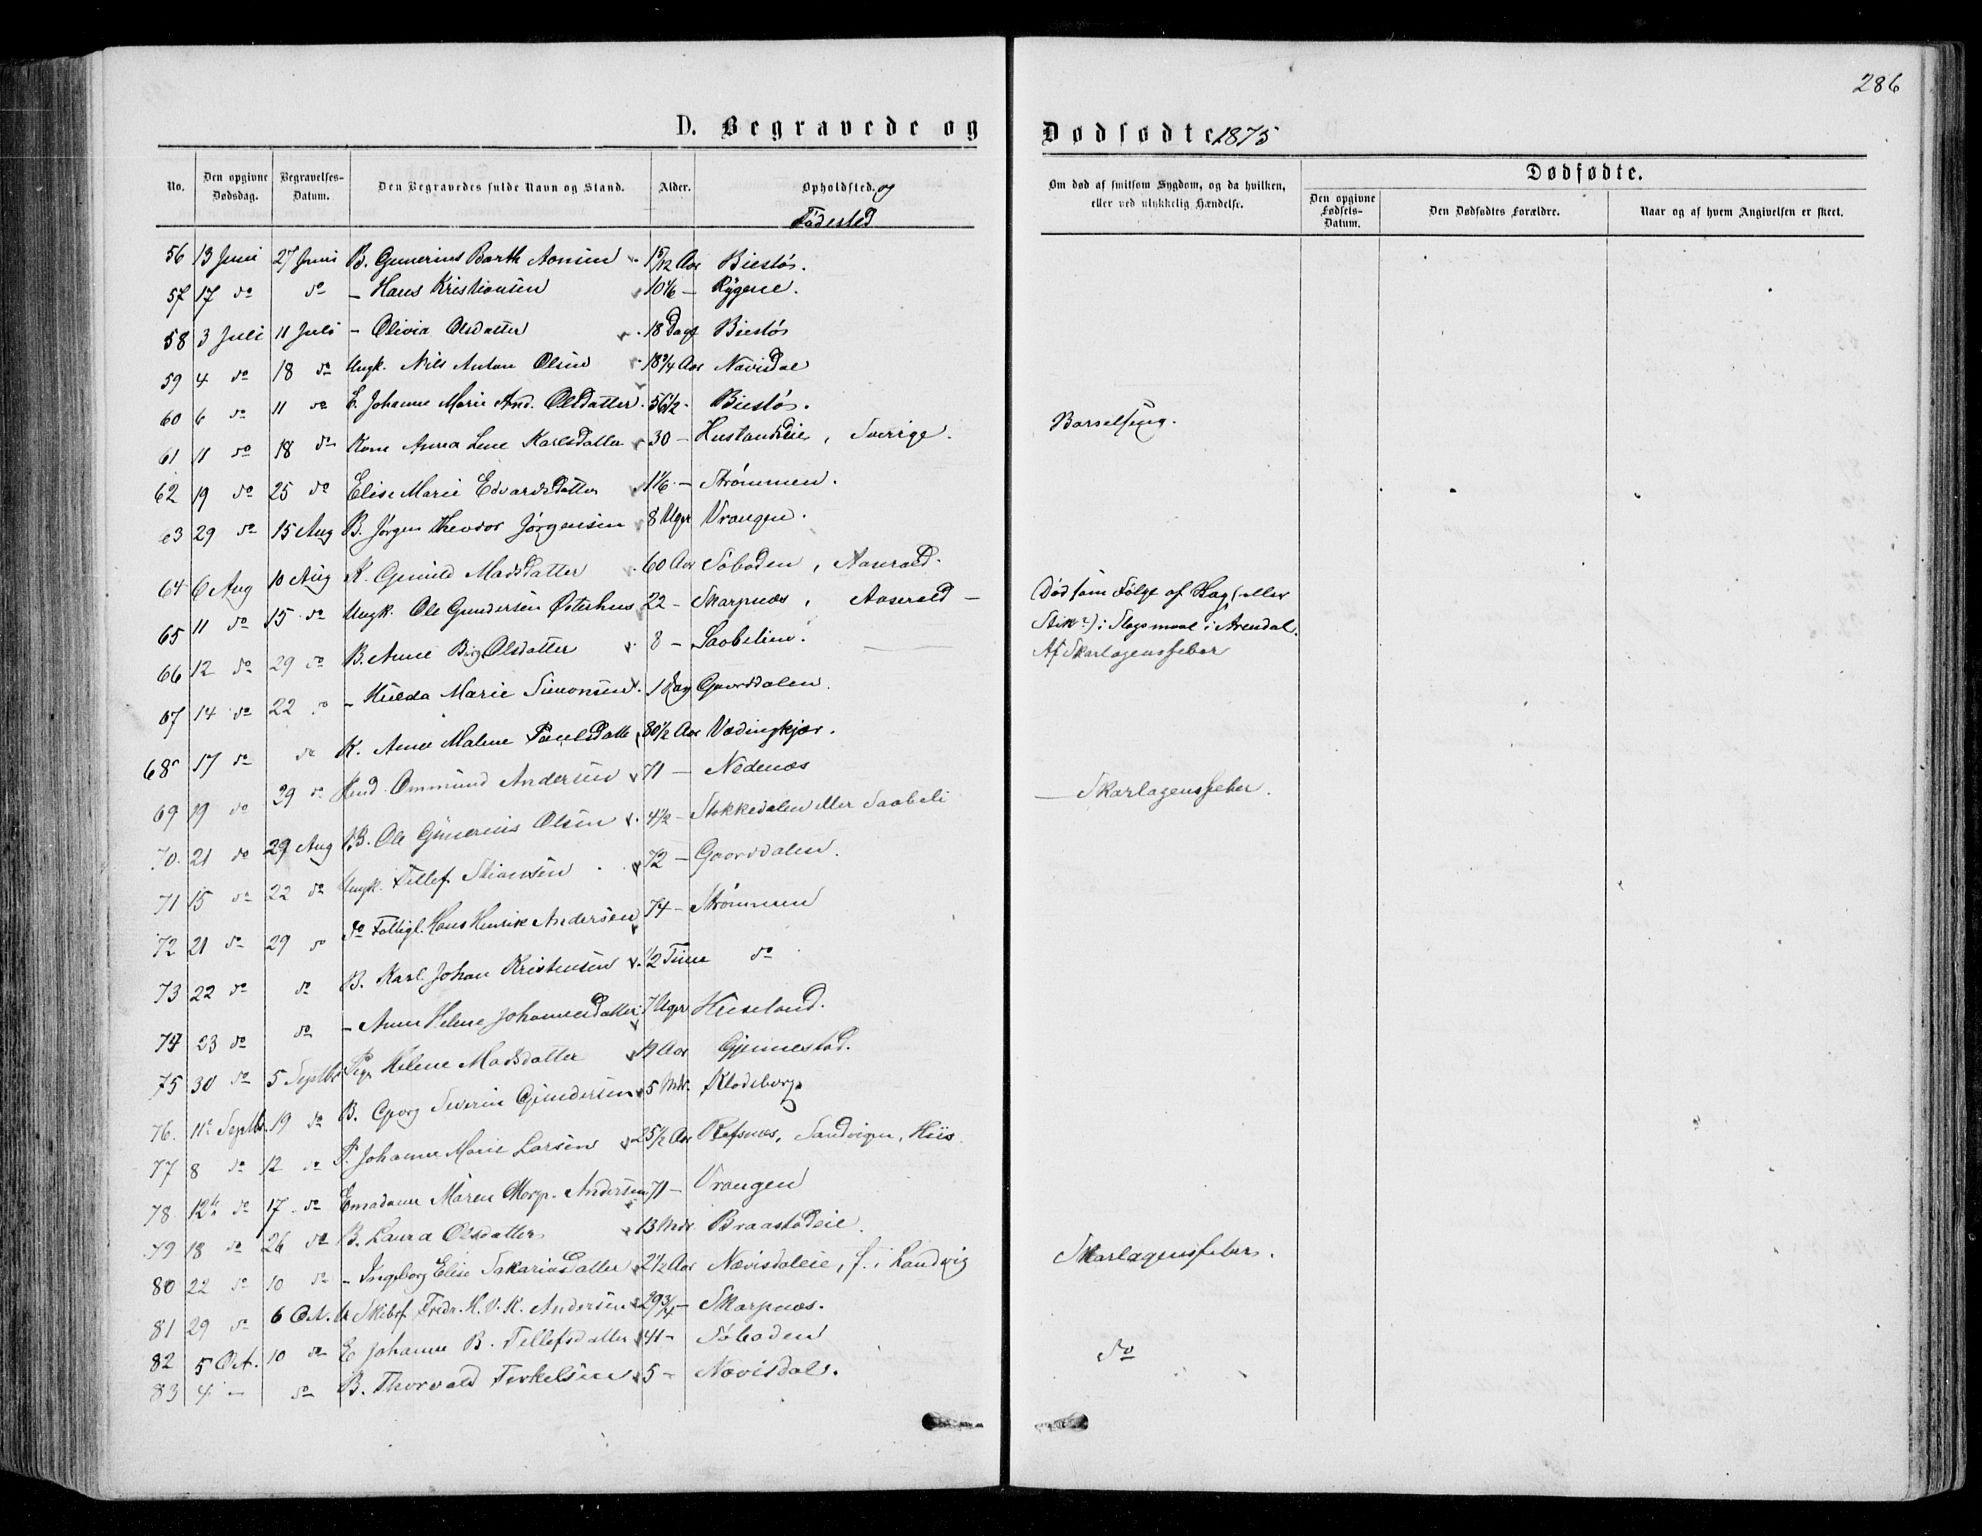 286
D. Begravede og Dødfødte 1875
No.
Den opgivne Dødsdag.
Begravelses-Datum.
Den Begravedes fulde Navn og Stand.
Alder.
Opholdsted. og Fødested
Om død af smitsom Sygdom, og da hvilken, eller ved ulykkelig Hændelse.
Dødfødte.
Den opgivne Fødsels-Datum.
Den Dødfødtes Forældre.
Naar og af hvem Angivelsen er skeet.
56 13 Juni 27 Juni B. Gunerius Barth Aonsen 15/12 Aar Biestøs.
57 17 do do – Hans Kristiansen 10 1/6 – Rygene.
58 3 Juli 11 Juli – Olivia Olsdatter 18 Dage Biestøs
59 4 do 18 do Ungk. Nils Anton Olsen 18 3/4 Aar Nævisdal
60 6 do 11 do E. Johanne Marie And. Olsdatter 56 1/2 - Biestøs.
61 11 do 18 do Kone Anna Lene Karlsdatter 30 – Hustandeie, Sverige. Barselseng.
62 19 do 25 do Elise Marie Edvardsdatter 1 1/6 – Strømmen.
63 29 do 15 Aug B. Jørgen Theodor Jørgensen 8 Uger Vrangen.
64 6 Aug 10 Aug K. Gunild Madsdatter 60 Aar Søboden, Aaserald.
65 11 do 15 do Ungk. Ole Gundersen Østerhus 22 – Skarpnæs, Aaserald – Død som Følge af Hug (eller Stik?) i Slagsmaal i Arendal.
66 12 do 29 do B. Anne Birg Olsdatter 8 – Saabelien. Af Skarlagensfeber
67 14 do 22 do – Hulda Marie Simonsen 1 Dag Gaarddalen.
68 17 do do K. Anne Malene Paulsdatter 80 1/2 Aar Vædingkjær.
69 19 do 29 do Ommund Andersen 71 – Nedenæs
70. 21 do 29 Aug B. Ole Gunerius Olsen 4 1/2 – Stokkedalen eller Saabeli — Skarlagensfeber.
71 15 do 22 do Ungk. Tellef Stiansen 72 – Gaarddalen.
72 21 do 29 do do Fattigl. Hans Henrik Andersen 74 – Strømmen
73 22 do do B. Karl Johan Kristensen 1/2 Time do
74 23 do do – Anne Helene Johannesdatter 7 Uger Huseland.
75 30 do 5 Septbr Pige Helene Madsdatter 19 Aar Gjennestad.
76. 11 Septbr. 19 do B. Georg Severin Gundersen 5 Mdr. Klodeborg
77 8 do 12 do P. Johanne Marie Larsen 25 1/2 Aar Refsnæs, Sandvigen, Hiis
78 12 do 17 do Emadame Maren Marg. Andersen 71 – Vrangen
79 18 do 26 do B. Laura Olsdatter 13 Mdr. Braastadeie
80 22 do 10 do – Ingeborg Elise Sakariasdatter 2 1/2 Aar Nævisdaleie, f. i Landvig Skarlagensfeber.
81 29 do 6 Oct. Skibsf. Fredr. H. V. K. Andersen 29 3/4 – Skarpnæs.
82 5 Oct. 10 do E Johanne B. Tellefsdatter 41 – Søboden
83 4 – do B. Thorvald Terkelsen 5 – Nævisdal. do